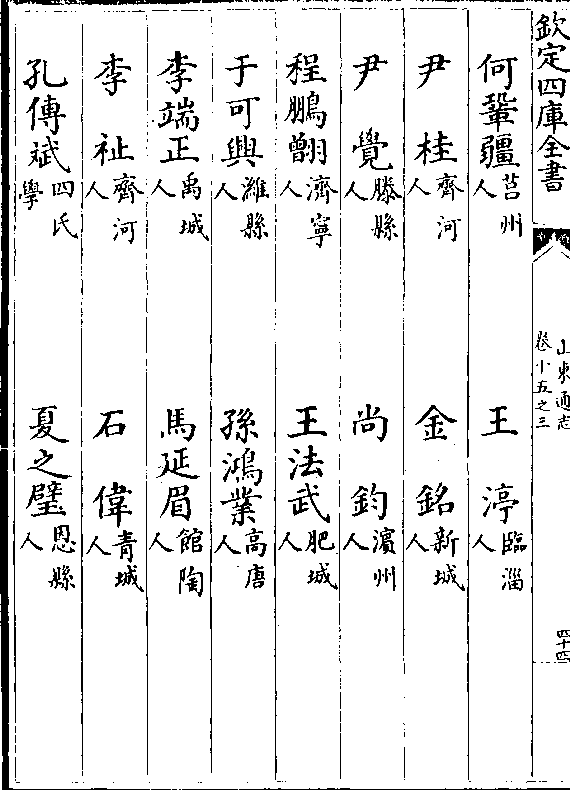 欽定四庫全書
山東通志
卷十五之三
四十四
何鞏疆莒州人 王渟臨淄人
尹桂齊河人 金銘新城人
尹覺滕縣人 尚鈞濱州人
程鵬翾濟寧人 王法武肥城人
于可興濰縣人 孫鴻業高唐人
李端正禹城人 馬延眉館陶人
李祉齊河人 石偉青城人
孔傳斌四氏學 夏之璧恩縣人